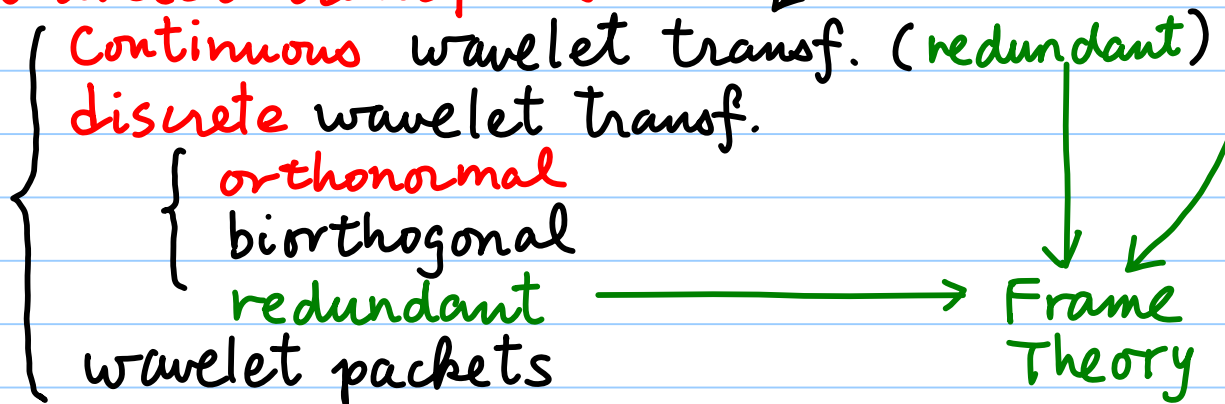 Continuous wavelet transf. (redundant)
discrete wavelet transf.
orthonormal
biorthogonal
redundant
Frame
Theory
wavelet packets